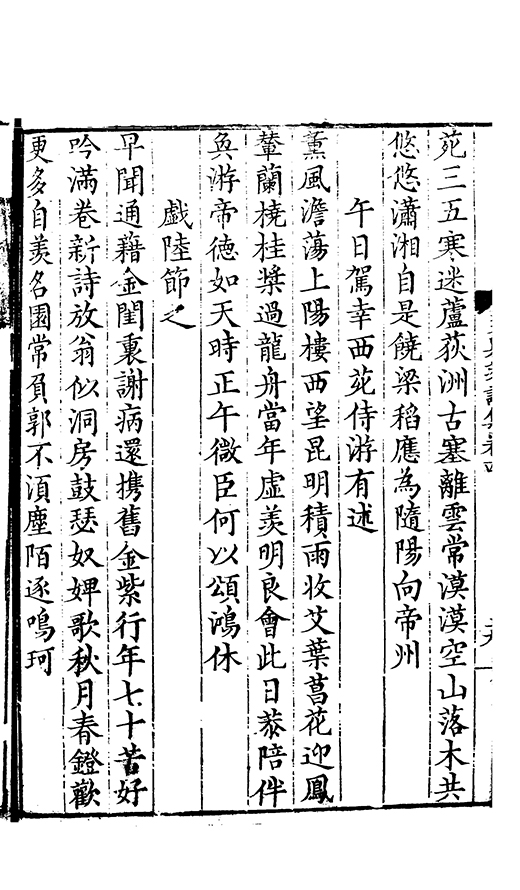 苑三五寒迷蘆荻洲古塞離雲常漠漠空山落木共
悠悠瀟湘自是饒梁稻應為隨陽向帝州
午日駕幸西苑侍游有述
薰風澹蕩上陽樓西望昆明積雨收艾葉菖花迎鳳
輦蘭橈桂槳過龍舟當年虛羡明良會此日叅陪伴
奐游帝德如天時正午微臣何以頌鴻休
戲陸節之
早聞通籍金閨裏謝病還携舊金紫行年七十苦好
吟滿卷新詩放翁似洞房鼓瑟奴婢歌秋月春鐙歡
更多自羡名園常負郭不湏塵陌逐鳴珂